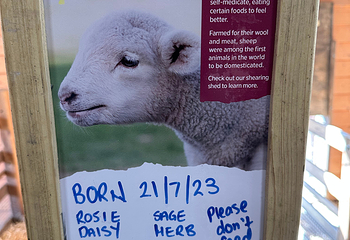 self-medicate, eating
certain foods to feel
better.
Farmed for their wool
and meat, sheep
were among the first
animals in the world
to be domesticated.
Check out our shearing
shed to learn more.
BORN 21/7/23
ROSIE SAGE Please
DAISY HERB don't